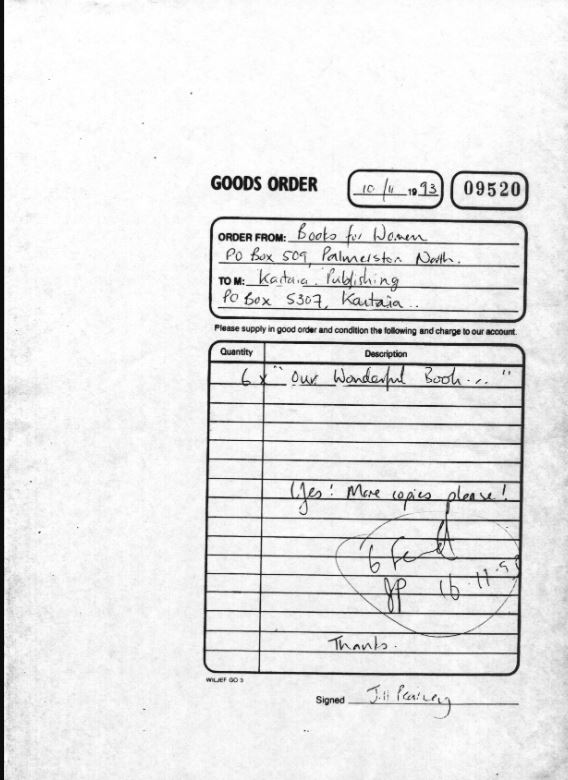 GOODS ORDER 10/11 1993 09520
ORDER FROM: Books for Women
PO Box 509, Palmerston North.
TO M: Kaitaia Publishing
PO Box 5307, Kaitaia..
Please supply in good order and condition the following and charge to our account.
Quantity Description
6 x "Our Wonderful Book..."
(Yes! More copies please!
6
JP 16.11.93
Thanks.
WILJEF GO 3
Signed Jill